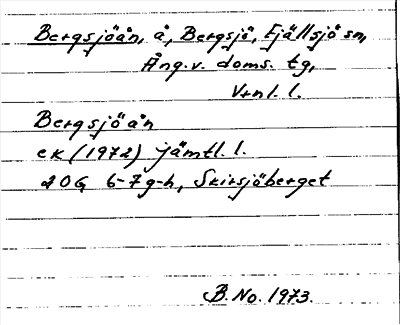 Bergsjöån, å, Bergsjö, Fjällsjö sn,
Ång.v. doms. tg,
Vrnl. l.
Bergsjöån
ek (1972) Jämtl. l.
20G 6-7g-h, Skirsjöberget
B. No. 1973.